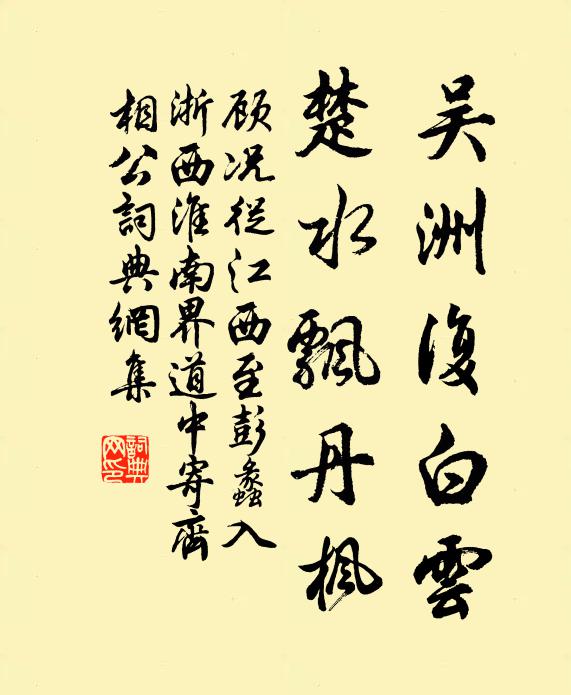 吴洲復白雲
楚水飄丹楓
顾况從江西至彭蠡入
浙西淮南界道中寄齊
相公詞典網集
詞典网印